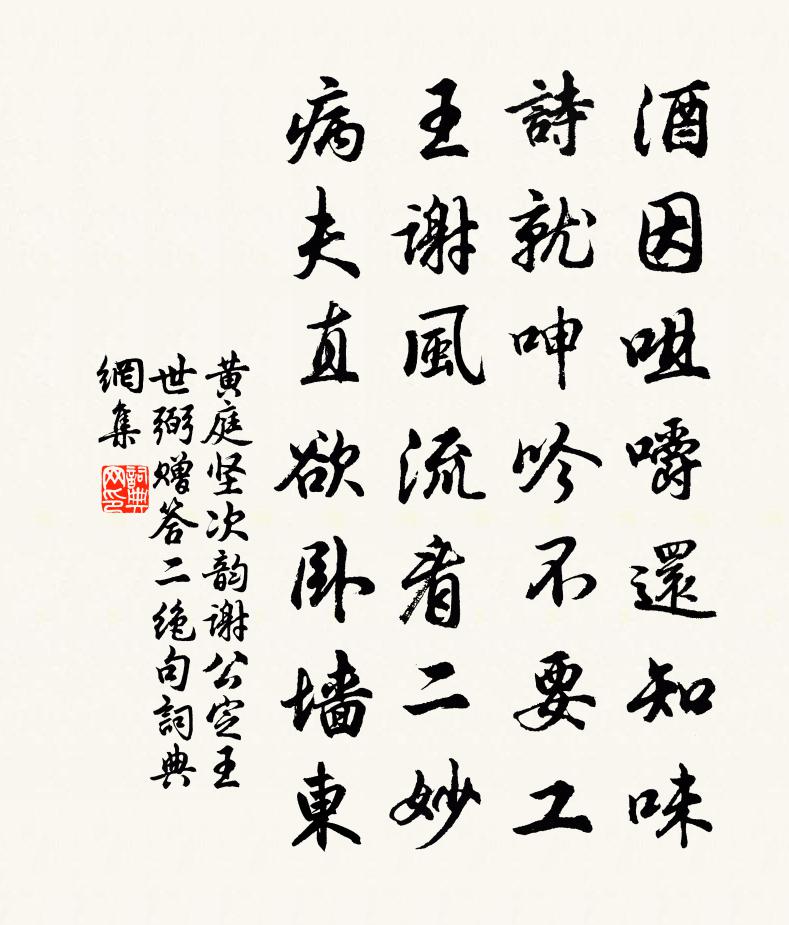 酒因咀嚼還知味
詩就呻吟不要工
王謝風流看二妙
病夫直欲卧墙東
黄庭坚次韵谢公定王
世弼赠答二绝句詞典
網集
詞典網印